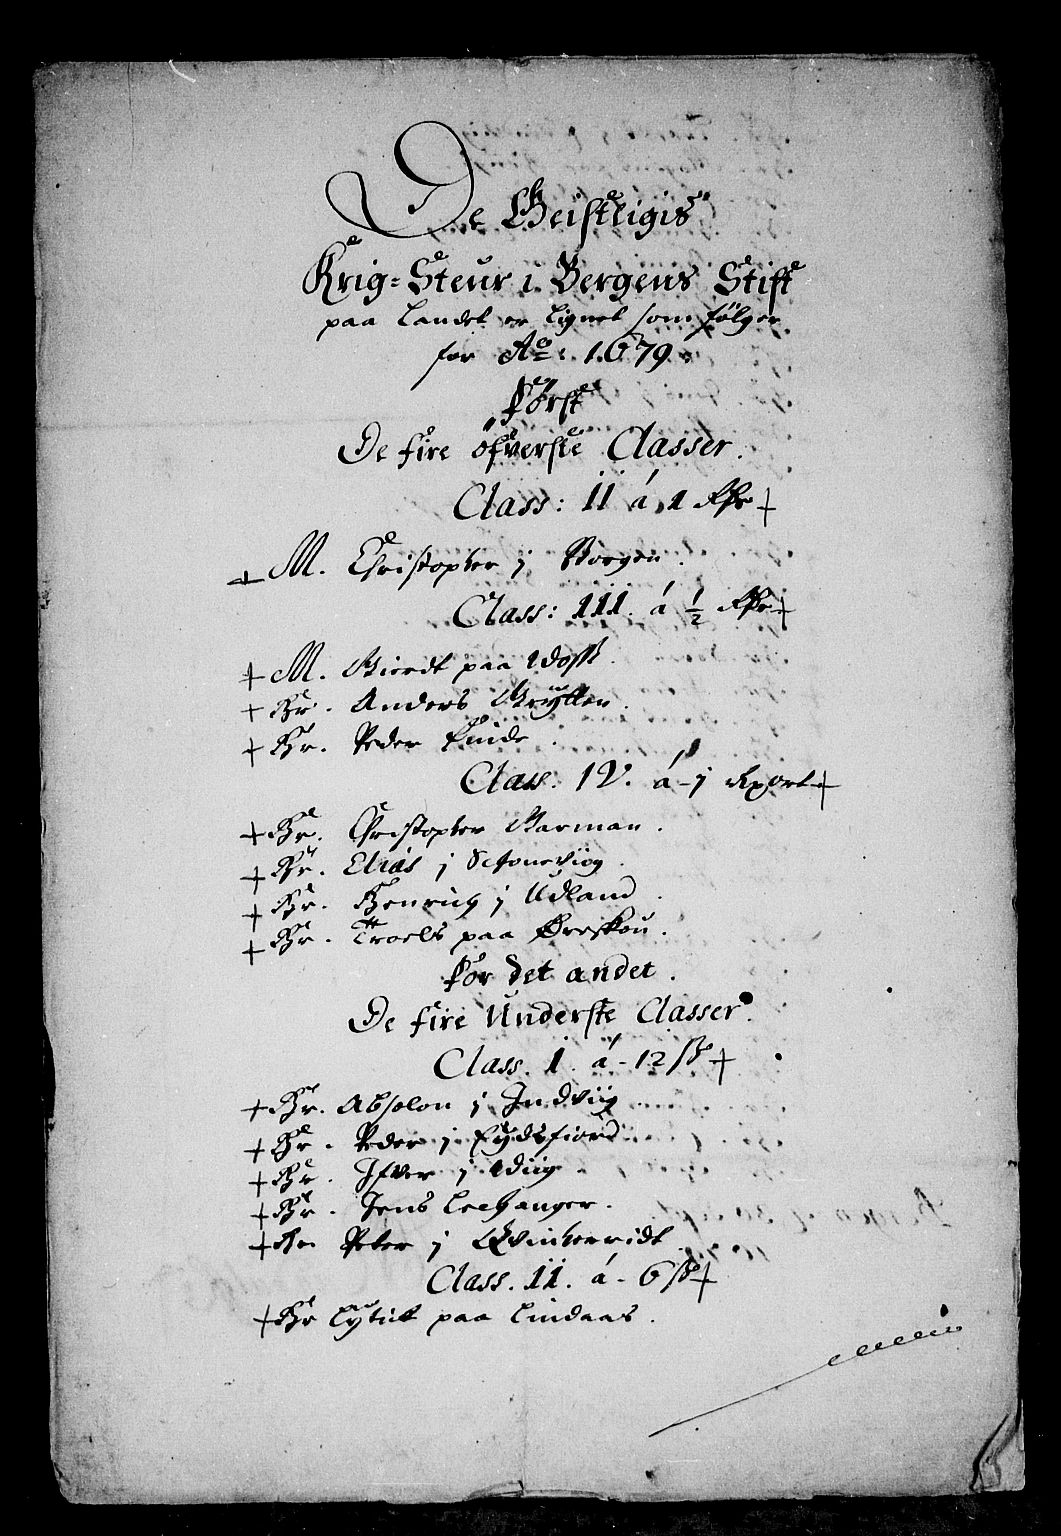 De Geistligis
Krig-Steur i Bergens Stift
paa Landet er lignet som følger
for Ao: 1679:
Først
De fire öfverste Classer.
Class: II á 1
M. Christopher j Bergen.
Class: III. á ½
M. Gierdt paa
Hr. Anders Grytten.
Hr. Peder Finde.
Class: IV. á - j ort
Hr. Christopher Garman.
Hr. Elias j Schoneviig
Hr. Henrich j Udland.
Hr. Troels paa Øreskou.
For det andet.
De fire Underste Classer.
Class. I. á - 12 ß
Hr. Absolon j Indviig
Hr. Peder j Eydsfiord
Hr. Ifver j
Hr. Jens Lechanger.
Hr. Peter j Qvinherridt
Class. II. á - 6 ß
Hr paa Lindaas.